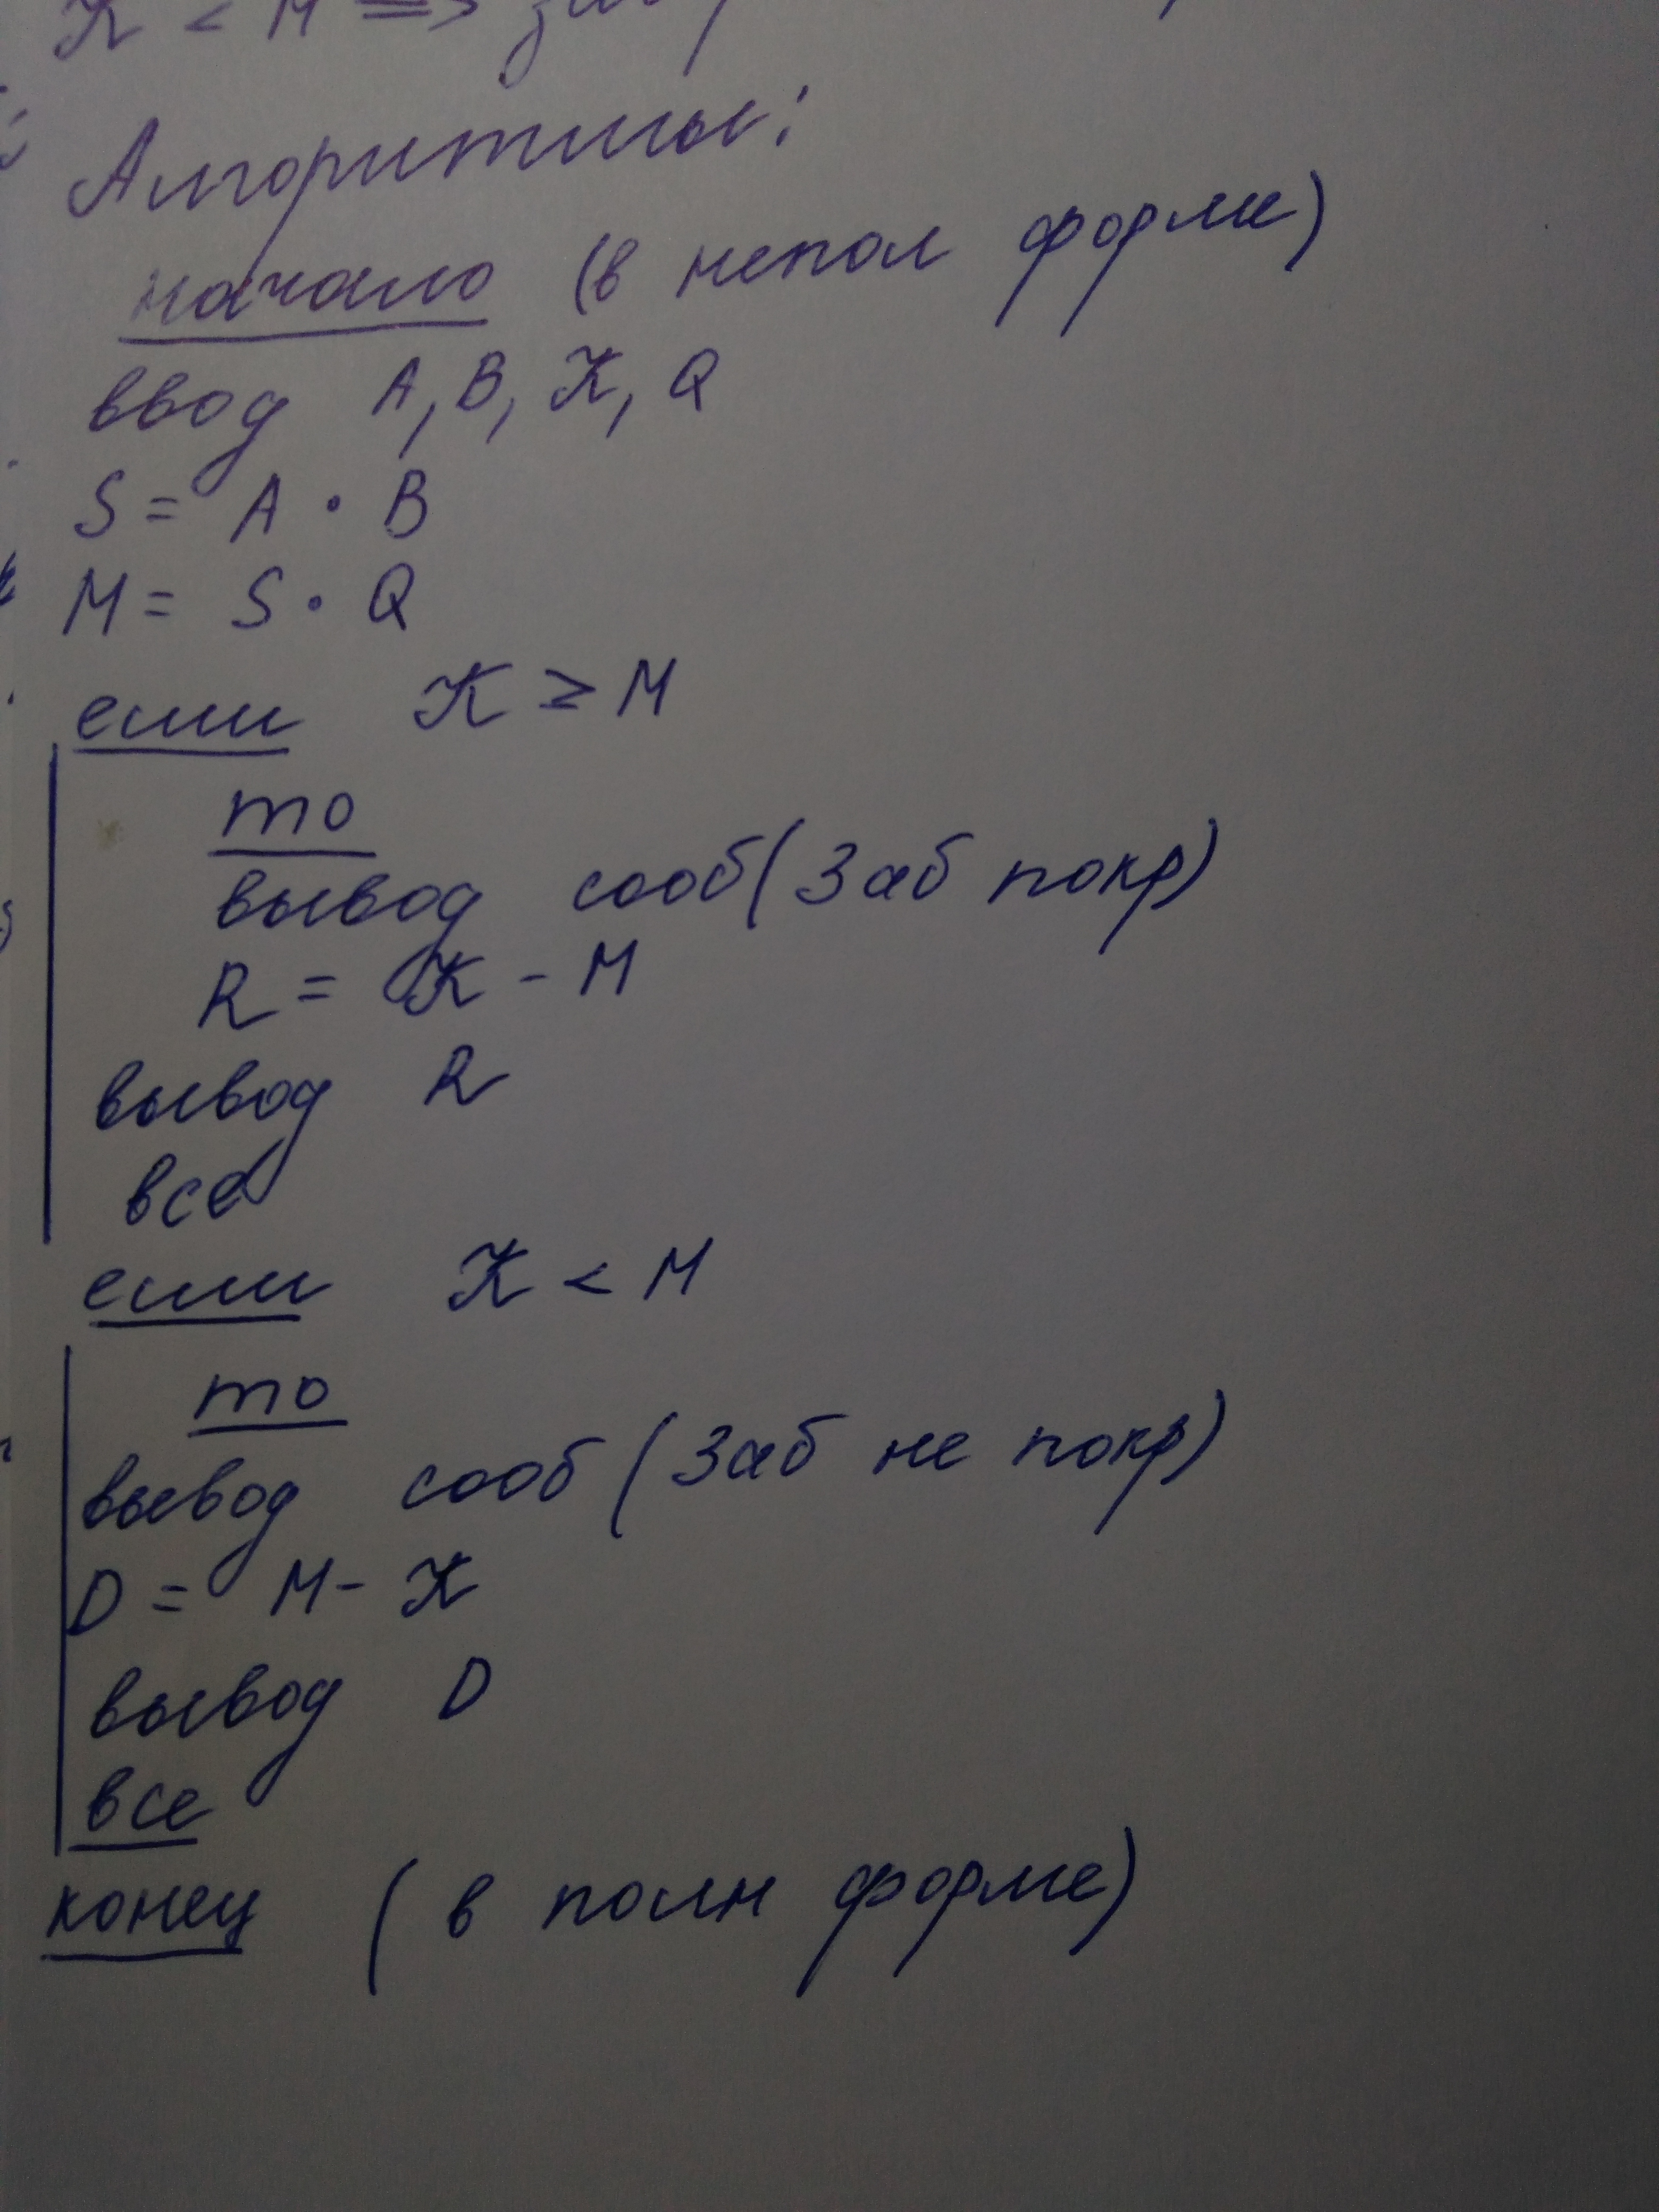 K < M =>
Алгоритмы:
начало (в непол форме)
ввод A, B, K, Q
S = A · B
M = S · Q
если K ≥ M
то
вывод сооб (Заб покр)
R = K - M
вывод R
все
если K < M
то
вывод сооб (Заб не покр)
D = M - K
вывод D
все
конец (в полн форме)